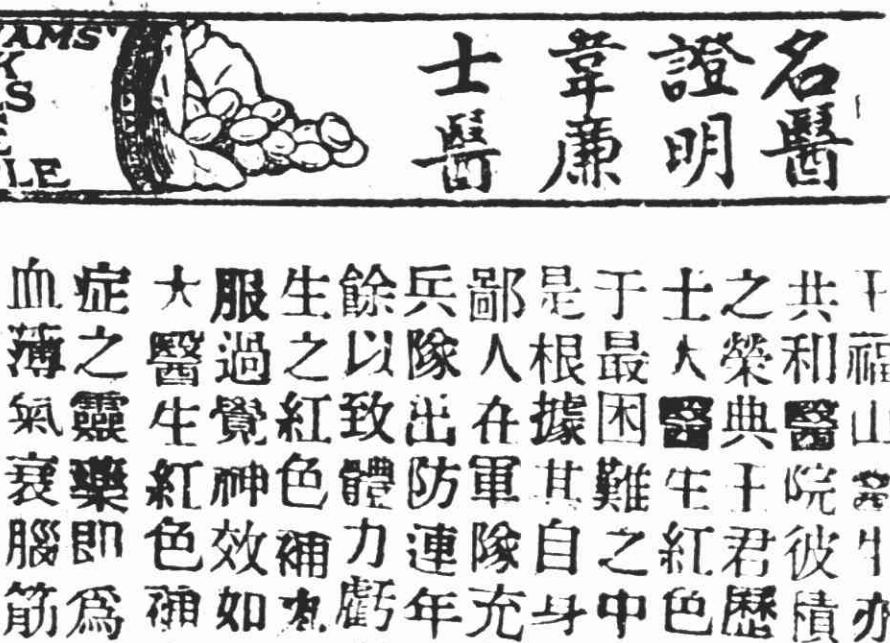 名醫
證明
韋廉
士醫
AMS'
K
S
E
PLE
王福山醫生亦
共和醫院彼積
之榮典王君歷
士大醫生紅色
于最困難之中
是根據其自身
鄙人在軍隊充
兵隊出防連年
餘以致體力虧
生之紅色補丸
服過覺神效如
大醫生紅色補
症之靈藥即爲
血薄氣衰腦筋